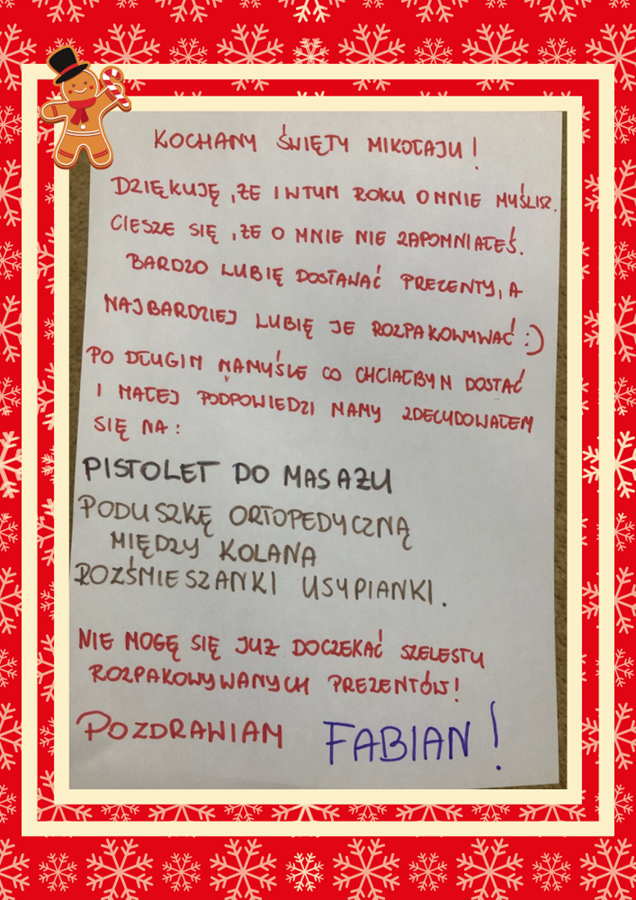 KOCHANY ŚWIĘTY MIKOŁAJU!
DZIĘKUJĘ, ŻE I W TYM ROKU O MNIE MYŚLISZ.
CIESZE SIĘ, ŻE O MNIE NIE ZAPOMNIAŁEŚ.
BARDZO LUBIĘ DOSTAWAĆ PREZENTY, A
NAJBARDZIEJ LUBIĘ JE ROZPAKOWYWAĆ :)
PO DŁUGIM NAMYŚLE CO CHCIAŁBYM DOSTAĆ
I MAŁEJ PODPOWIEDZI MAMY ZDECYDOWAŁEM
SIĘ NA:
PISTOLET DO MASAŻU
PODUSZKĘ ORTOPEDYCZNĄ
MIĘDZY KOLANA
ROZŚMIESZANKI USYPIANKI.
NIE MOGĘ SIĘ JUŻ DOCZEKAĆ SZELESTU
ROZPAKOWYWANYCH PREZENTÓW!
POZDRAWIAM FABIAN!